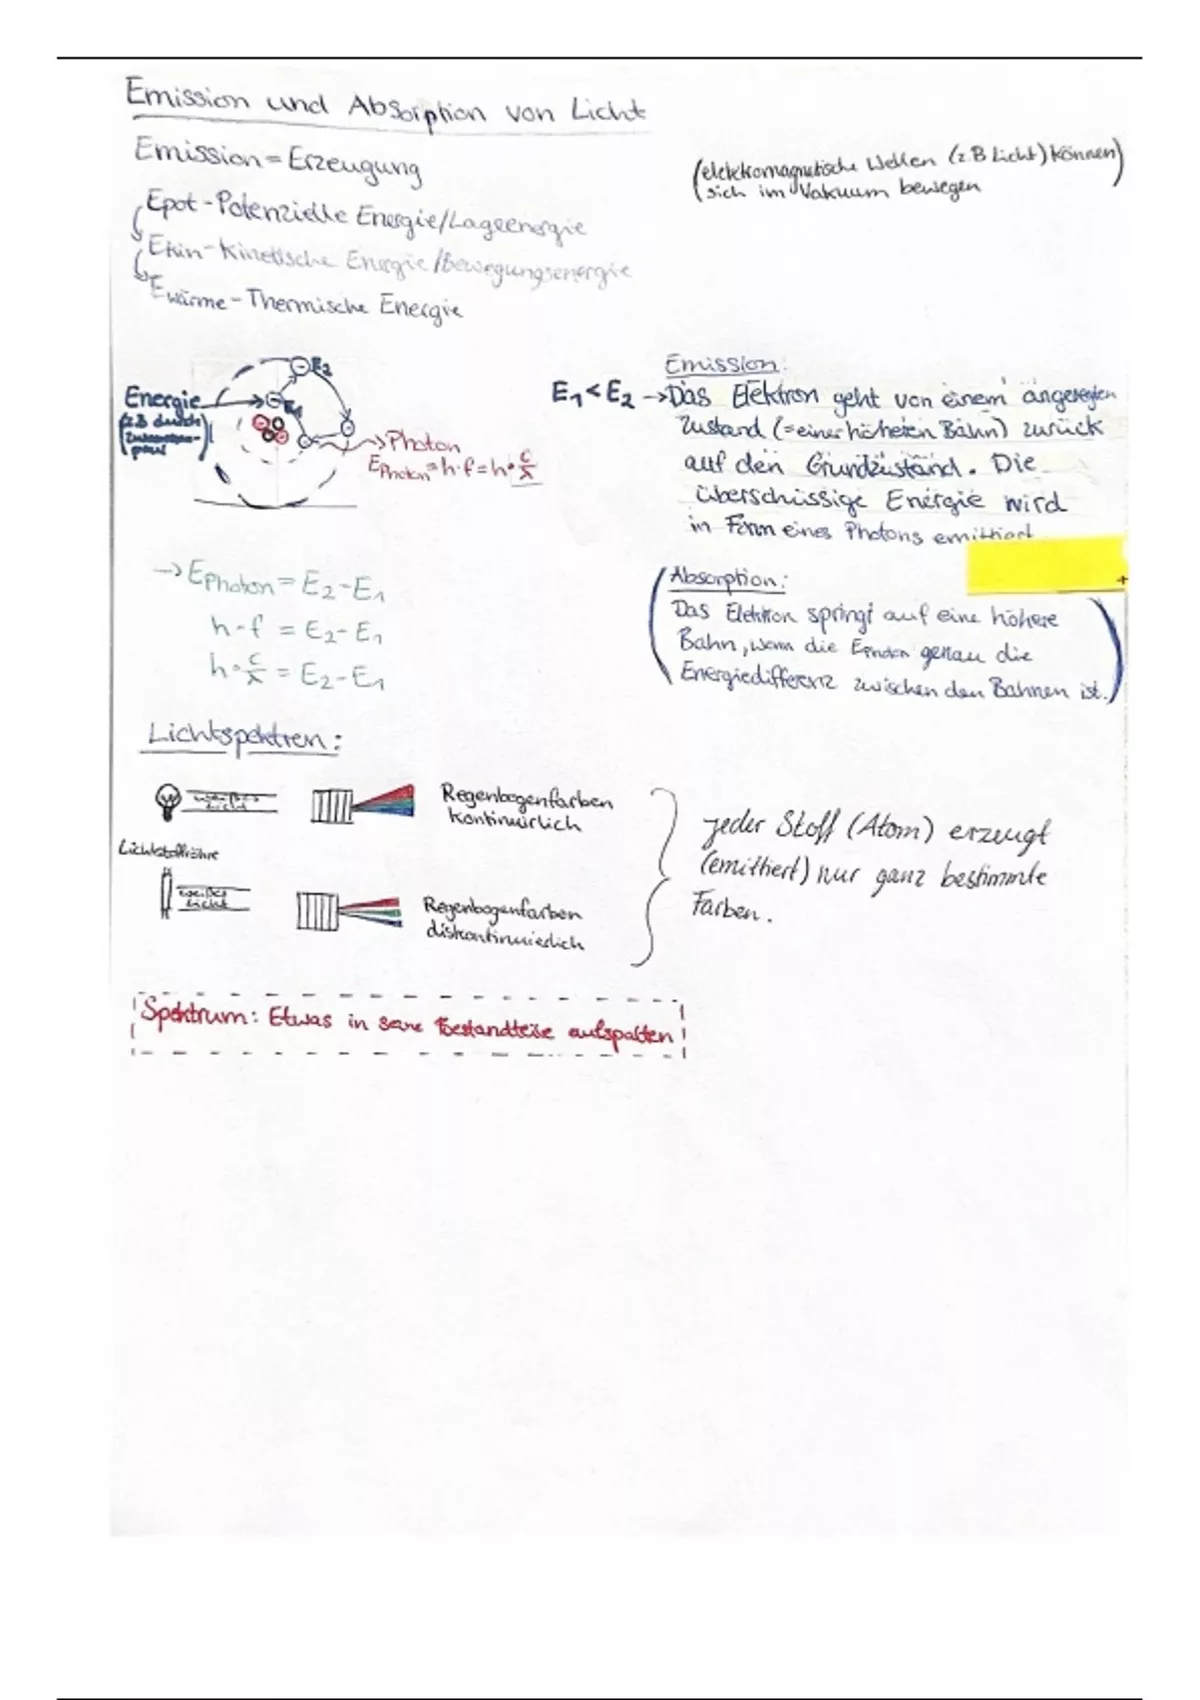 Emission und Absorption von Licht
Emission = Erzeugung
(elektromagnetische Wellen (z.B Licht) können)
sich im Vakuum bewegen
Epot - Potenzielle Energie/Lageenergie
Ekin - Kinetische Energie/Bewegungsenergie
Ewärme - Thermische Energie
E2
Energie
(z.B durch
E1
Photon
EPhoton = h·f = h·c/λ
Emission:
E1 < E2 → Das Elektron geht von einem angeregten
Zustand (= einer höheren Bahn) zurück
auf den Grundzustand. Die
überschüssige Energie wird
in Form eines Photons emittiert
→ EPhoton = E2 - E1
h·f = E2 - E1
h·c/λ = E2 - E1
Absorption:
Das Elektron springt auf eine höhere
Bahn, wenn die EPhoton genau die
Energiedifferenz zwischen den Bahnen ist.
Lichtspektren:
weißes
Licht
Regenbogenfarben
kontinuirlich
Lichtstoffröhre
weißes
Licht
Regenbogenfarben
diskontinuierlich
jeder Stoff (Atom) erzeugt
(emittiert) nur ganz bestimmte
Farben.
Spektrum: Etwas in seine Bestandteile aufspalten